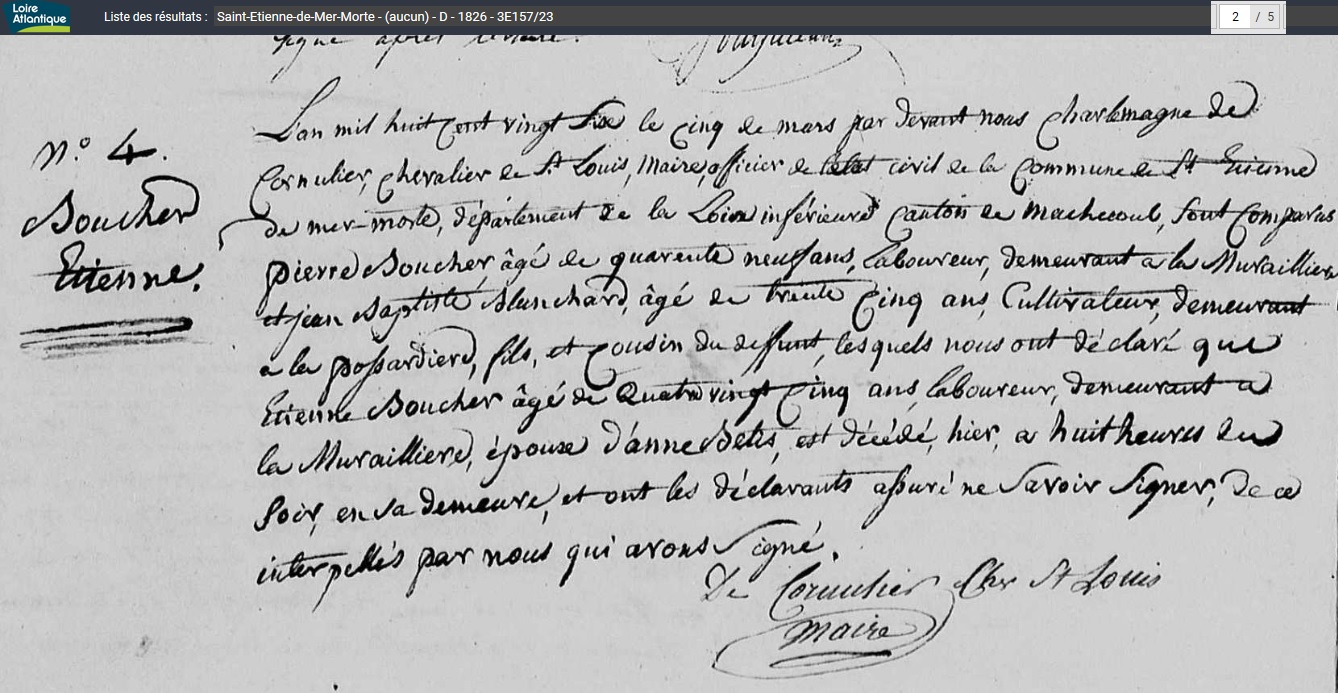 Loire
Atlantique
Liste des résultats : Saint-Etienne-de-Mer-Morte - (aucun) - D - 1826 - 3E157/23
2 / 5
signé après lecture.
n.° 4.
Boucher
Etienne.
L'an mil huit cent vingt Six le cinq de mars par devant nous Charlemagne de
Cornulier, chevalier de St Louis, Maire, officier de l'état civil de la Commune de St Etienne
de mer-morte, département de la Loire inférieure canton de Machecoul, sont comparus
pierre Boucher âgé de quarente neuf ans, laboureur, demeurant a la Muraillière
et jean Baptiste Blanchard, âgé de trente Cinq ans, Cultivateur, demeurant
a la possardiere, fils, et Cousin du defunt, lesquels nous ont déclaré que
Etienne Boucher âgé de Quatre vingt Cinq ans, laboureur, demeurant a
la Muraillière, épouse d'anne, est décédé, hier, a huit heures du
Soir, en sa demeure, et ont les déclarants assuré ne Savoir Signer, de ce
interpellés par nous qui avons Signé.
De Cornulier Cher St Louis
maire